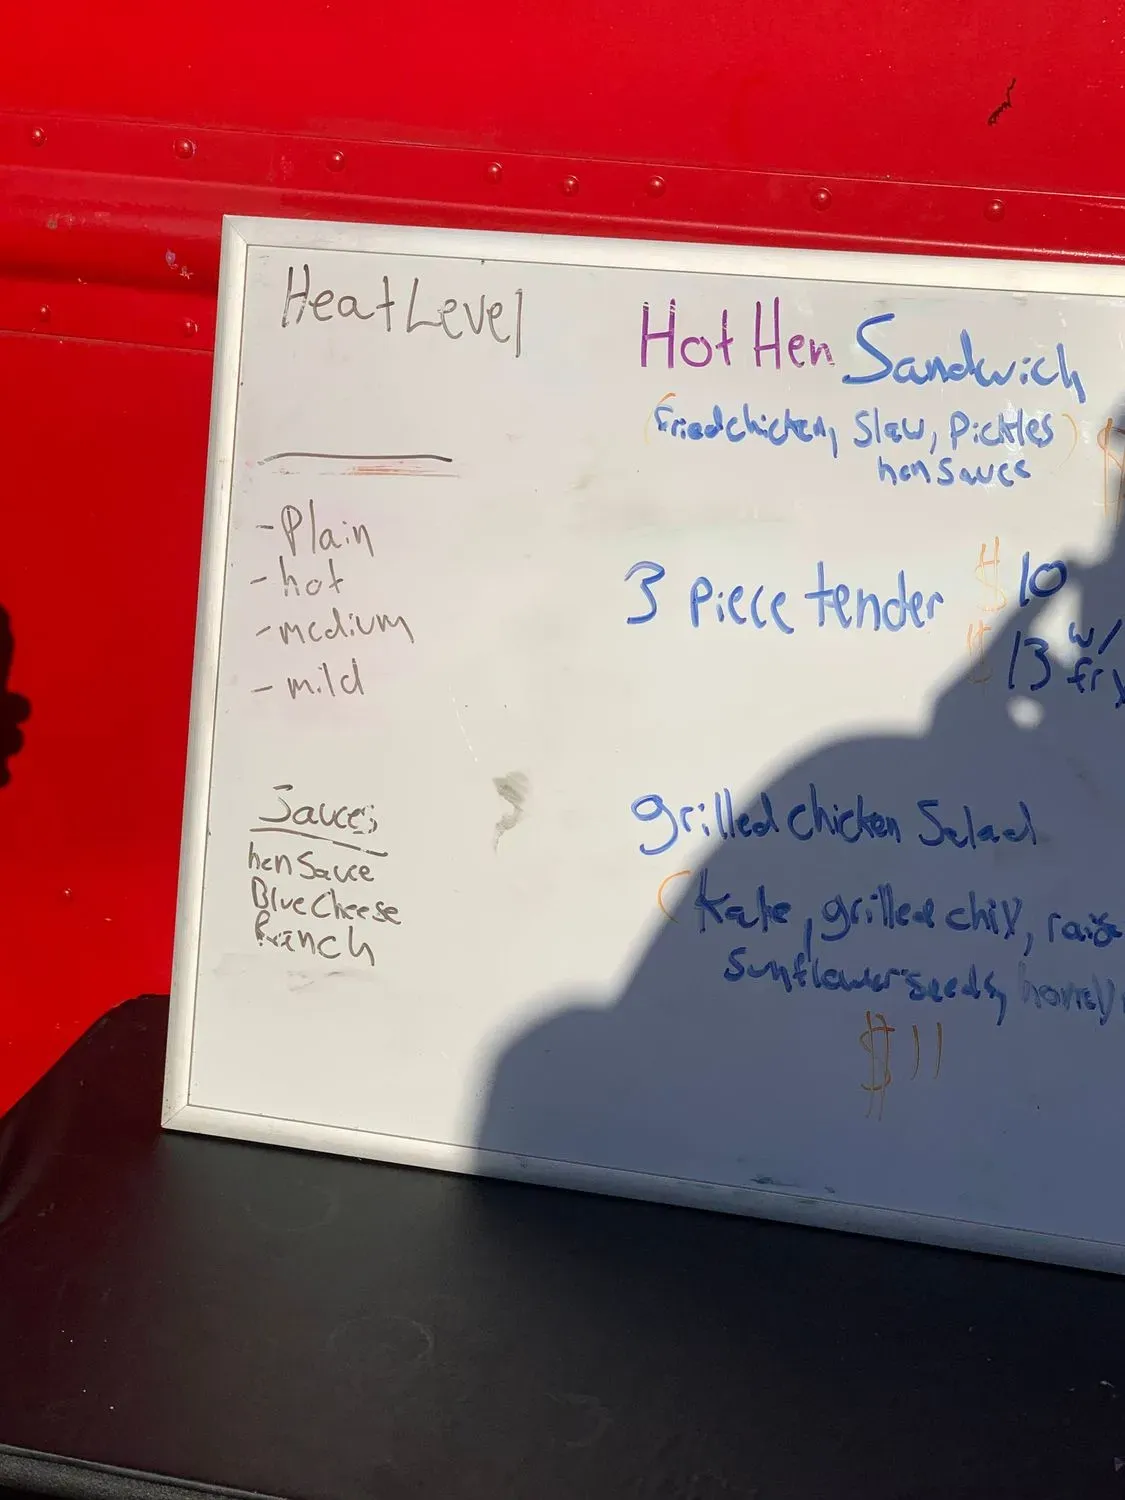 Heat Level
- Plain
- hot
- medium
- mild
Sauces
hen Sauce
Blue Cheese
Ranch
Hot Hen Sandwich
(Fried chicken, Slaw, Pickles)
hen sauce
$
3 Piece tender $10
$13 w/
fry
grilled chicken Salad
(kale, grilled chix, rais
Sunflower seeds,
$11